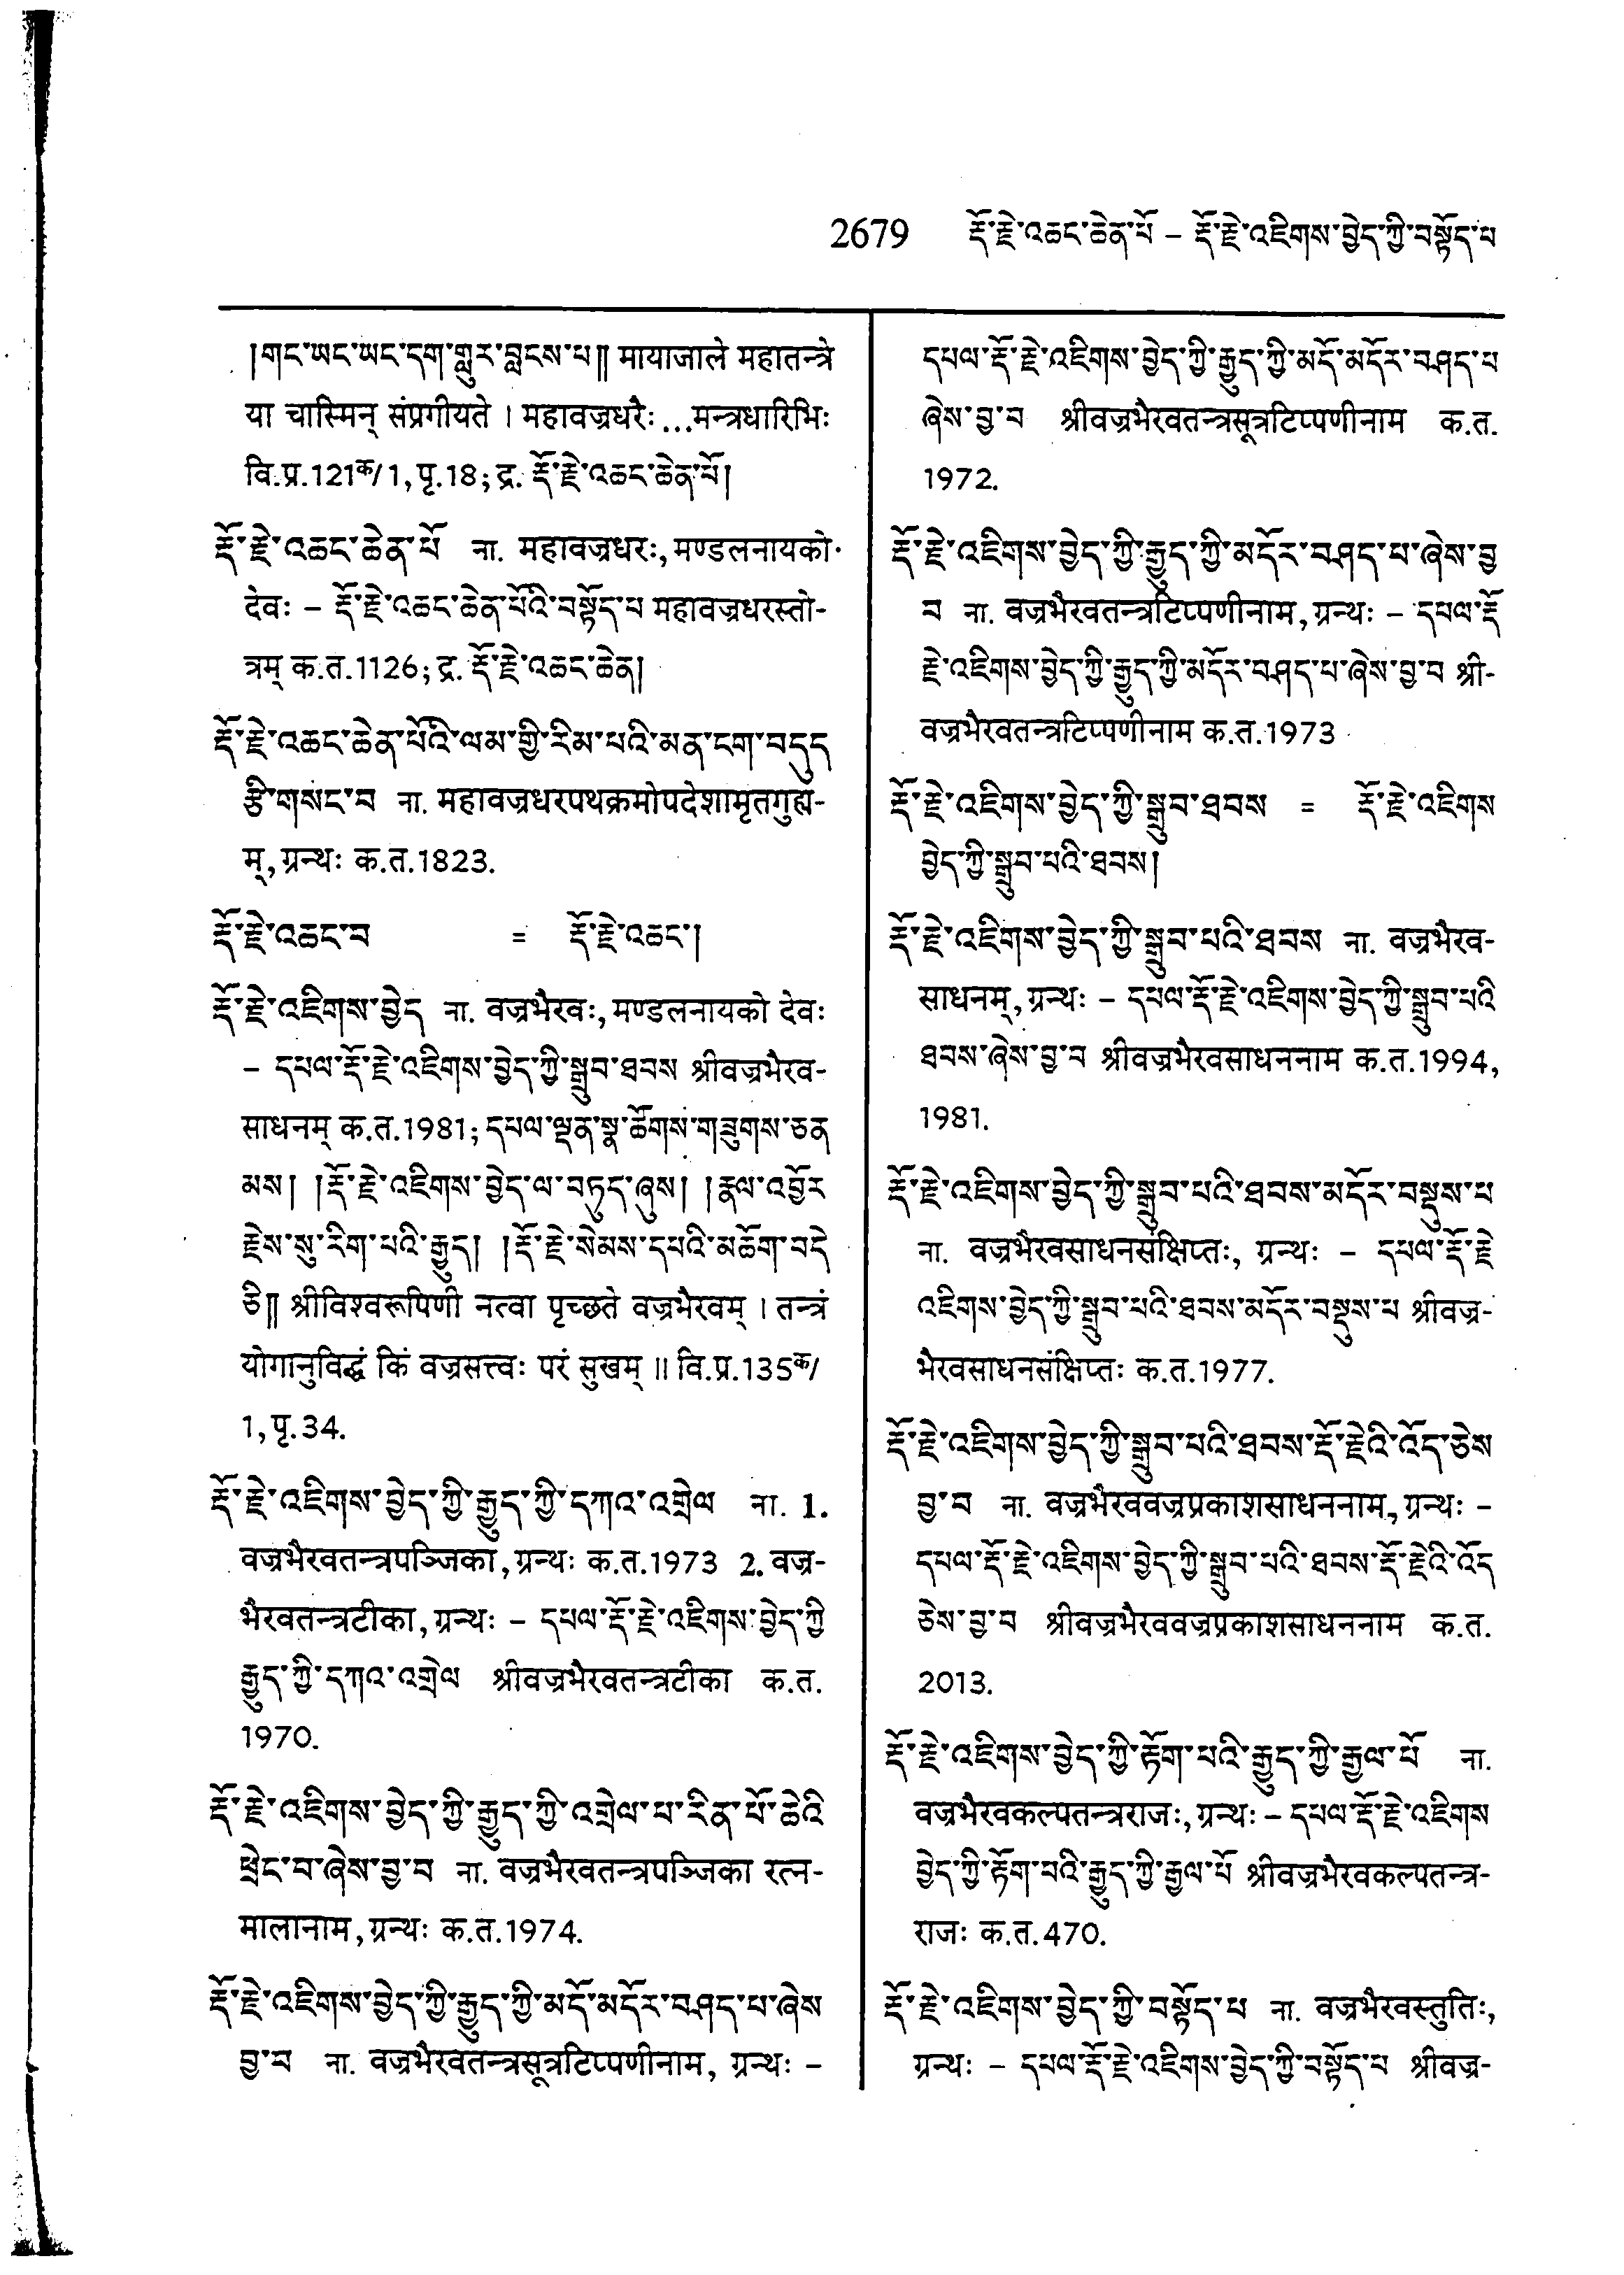 2679 རྡོ་རྗེ་འཆང་ཆེན་པོ – རྡོ་རྗེ་འཇིགས་བྱེད་ཀྱི་བསྟོད་པ
།གང་ཡང་ཡང་དག་གླུར་བླངས་པ༎ मायाजाले महातन्त्रे
या चास्मिन् संप्रगीयते । महावज्रधरैः...मन्त्रधारिभिः
वि.प्र.121क/1, पृ.18; द्र. རྡོ་རྗེ་འཆང་ཆེན་པོ།
རྡོ་རྗེ་འཆང་ཆེན་པོ ना. महावज्रधरः, मण्डलनायको
देवः – རྡོ་རྗེ་འཆང་ཆེན་པོའི་བསྟོད་པ महावज्रधरस्तो-
त्रम् क.त.1126; द्र. རྡོ་རྗེ་འཆང་ཆེན།
རྡོ་རྗེ་འཆང་ཆེན་པོའི་ལམ་གྱི་རིམ་པའི་མན་ངག་བདུད
རྩི་གསང་བ ना. महावज्रधरपथक्रमोपदेशामृतगुह्य-
म्, ग्रन्थः क.त.1823.
རྡོ་རྗེ་འཆང་བ = རྡོ་རྗེ་འཆང་།
རྡོ་རྗེ་འཇིགས་བྱེད ना. वज्रभैरवः, मण्डलनायको देवः
– དཔལ་རྡོ་རྗེ་འཇིགས་བྱེད་ཀྱི་སྒྲུབ་ཐབས श्रीवज्रभैरव-
साधनम् क.त.1981; དཔལ་ལྡན་སྣ་ཚོགས་གཟུགས་ཅན
མས། །རྡོ་རྗེ་འཇིགས་བྱེད་ལ་བཏུད་ཞུས། །རྣལ་འབྱོར
རྗེས་སུ་རིག་པའི་རྒྱུད། །རྡོ་རྗེ་སེམས་དཔའི་མཆོག་བདེ
ཅི༎ श्रीविश्वरूपिणी नत्वा पृच्छते वज्रभैरवम् । तन्त्रं
योगानुविद्धं किं वज्रसत्त्वः परं सुखम् ॥ वि.प्र.135क/
1, पृ.34.
རྡོ་རྗེ་འཇིགས་བྱེད་ཀྱི་རྒྱུད་ཀྱི་དཀའ་འགྲེལ ना. 1.
वज्रभैरवतन्त्रपञ्जिका, ग्रन्थः क.त.1973 2. वज्र-
भैरवतन्त्रटीका, ग्रन्थः – དཔལ་རྡོ་རྗེ་འཇིགས་བྱེད་ཀྱི
རྒྱུད་ཀྱི་དཀའ་འགྲེལ श्रीवज्रभैरवतन्त्रटीका क.त.
1970.
རྡོ་རྗེ་འཇིགས་བྱེད་ཀྱི་རྒྱུད་ཀྱི་འགྲེལ་པ་རིན་པོ་ཆེའི
ཕྲེང་བ་ཞེས་བྱ་བ ना. वज्रभैरवतन्त्रपञ्जिका रत्न-
मालानाम, ग्रन्थः क.त.1974.
རྡོ་རྗེ་འཇིགས་བྱེད་ཀྱི་རྒྱུད་ཀྱི་མདོ་མདོར་བཤད་པ་ཞེས
བྱ་བ ना. वज्रभैरवतन्त्रसूत्रटिप्पणीनाम, ग्रन्थः –
དཔལ་རྡོ་རྗེ་འཇིགས་བྱེད་ཀྱི་རྒྱུད་ཀྱི་མདོ་མདོར་བཤད་པ
ཞེས་བྱ་བ श्रीवज्रभैरवतन्त्रसूत्रटिप्पणीनाम क.त.
1972.
རྡོ་རྗེ་འཇིགས་བྱེད་ཀྱི་རྒྱུད་ཀྱི་མདོར་བཤད་པ་ཞེས་བྱ
བ ना. वज्रभैरवतन्त्रटिप्पणीनाम, ग्रन्थः – དཔལ་རྡོ
རྗེ་འཇིགས་བྱེད་ཀྱི་རྒྱུད་ཀྱི་མདོར་བཤད་པ་ཞེས་བྱ་བ श्री-
वज्रभैरवतन्त्रटिप्पणीनाम क.त.1973
རྡོ་རྗེ་འཇིགས་བྱེད་ཀྱི་སྒྲུབ་ཐབས = རྡོ་རྗེ་འཇིགས
བྱེད་ཀྱི་སྒྲུབ་པའི་ཐབས།
རྡོ་རྗེ་འཇིགས་བྱེད་ཀྱི་སྒྲུབ་པའི་ཐབས ना. वज्रभैरव-
साधनम्, ग्रन्थः – དཔལ་རྡོ་རྗེ་འཇིགས་བྱེད་ཀྱི་སྒྲུབ་པའི
ཐབས་ཞེས་བྱ་བ श्रीवज्रभैरवसाधननाम क.त.1994,
1981.
རྡོ་རྗེ་འཇིགས་བྱེད་ཀྱི་སྒྲུབ་པའི་ཐབས་མདོར་བསྡུས་པ
ना. वज्रभैरवसाधनसंक्षिप्तः, ग्रन्थः – དཔལ་རྡོ་རྗེ
འཇིགས་བྱེད་ཀྱི་སྒྲུབ་པའི་ཐབས་མདོར་བསྡུས་པ श्रीवज्र-
भैरवसाधनसंक्षिप्तः क.त.1977.
རྡོ་རྗེ་འཇིགས་བྱེད་ཀྱི་སྒྲུབ་པའི་ཐབས་རྡོ་རྗེའི་འོད་ཅེས
བྱ་བ ना. वज्रभैरववज्रप्रकाशसाधननाम, ग्रन्थः –
དཔལ་རྡོ་རྗེ་འཇིགས་བྱེད་ཀྱི་སྒྲུབ་པའི་ཐབས་རྡོ་རྗེའི་འོད
ཅེས་བྱ་བ श्रीवज्रभैरववज्रप्रकाशसाधननाम क.त.
2013.
རྡོ་རྗེ་འཇིགས་བྱེད་ཀྱི་རྟོག་པའི་རྒྱུད་ཀྱི་རྒྱལ་པོ ना.
वज्रभैरवकल्पतन्त्रराजः, ग्रन्थः – དཔལ་རྡོ་རྗེ་འཇིགས
བྱེད་ཀྱི་རྟོག་པའི་རྒྱུད་ཀྱི་རྒྱལ་པོ श्रीवज्रभैरवकल्पतन्त्र-
राजः क.त.470.
རྡོ་རྗེ་འཇིགས་བྱེད་ཀྱི་བསྟོད་པ ना. वज्रभैरवस्तुतिः,
ग्रन्थः – དཔལ་རྡོ་རྗེ་འཇིགས་བྱེད་ཀྱི་བསྟོད་པ श्रीवज्र-